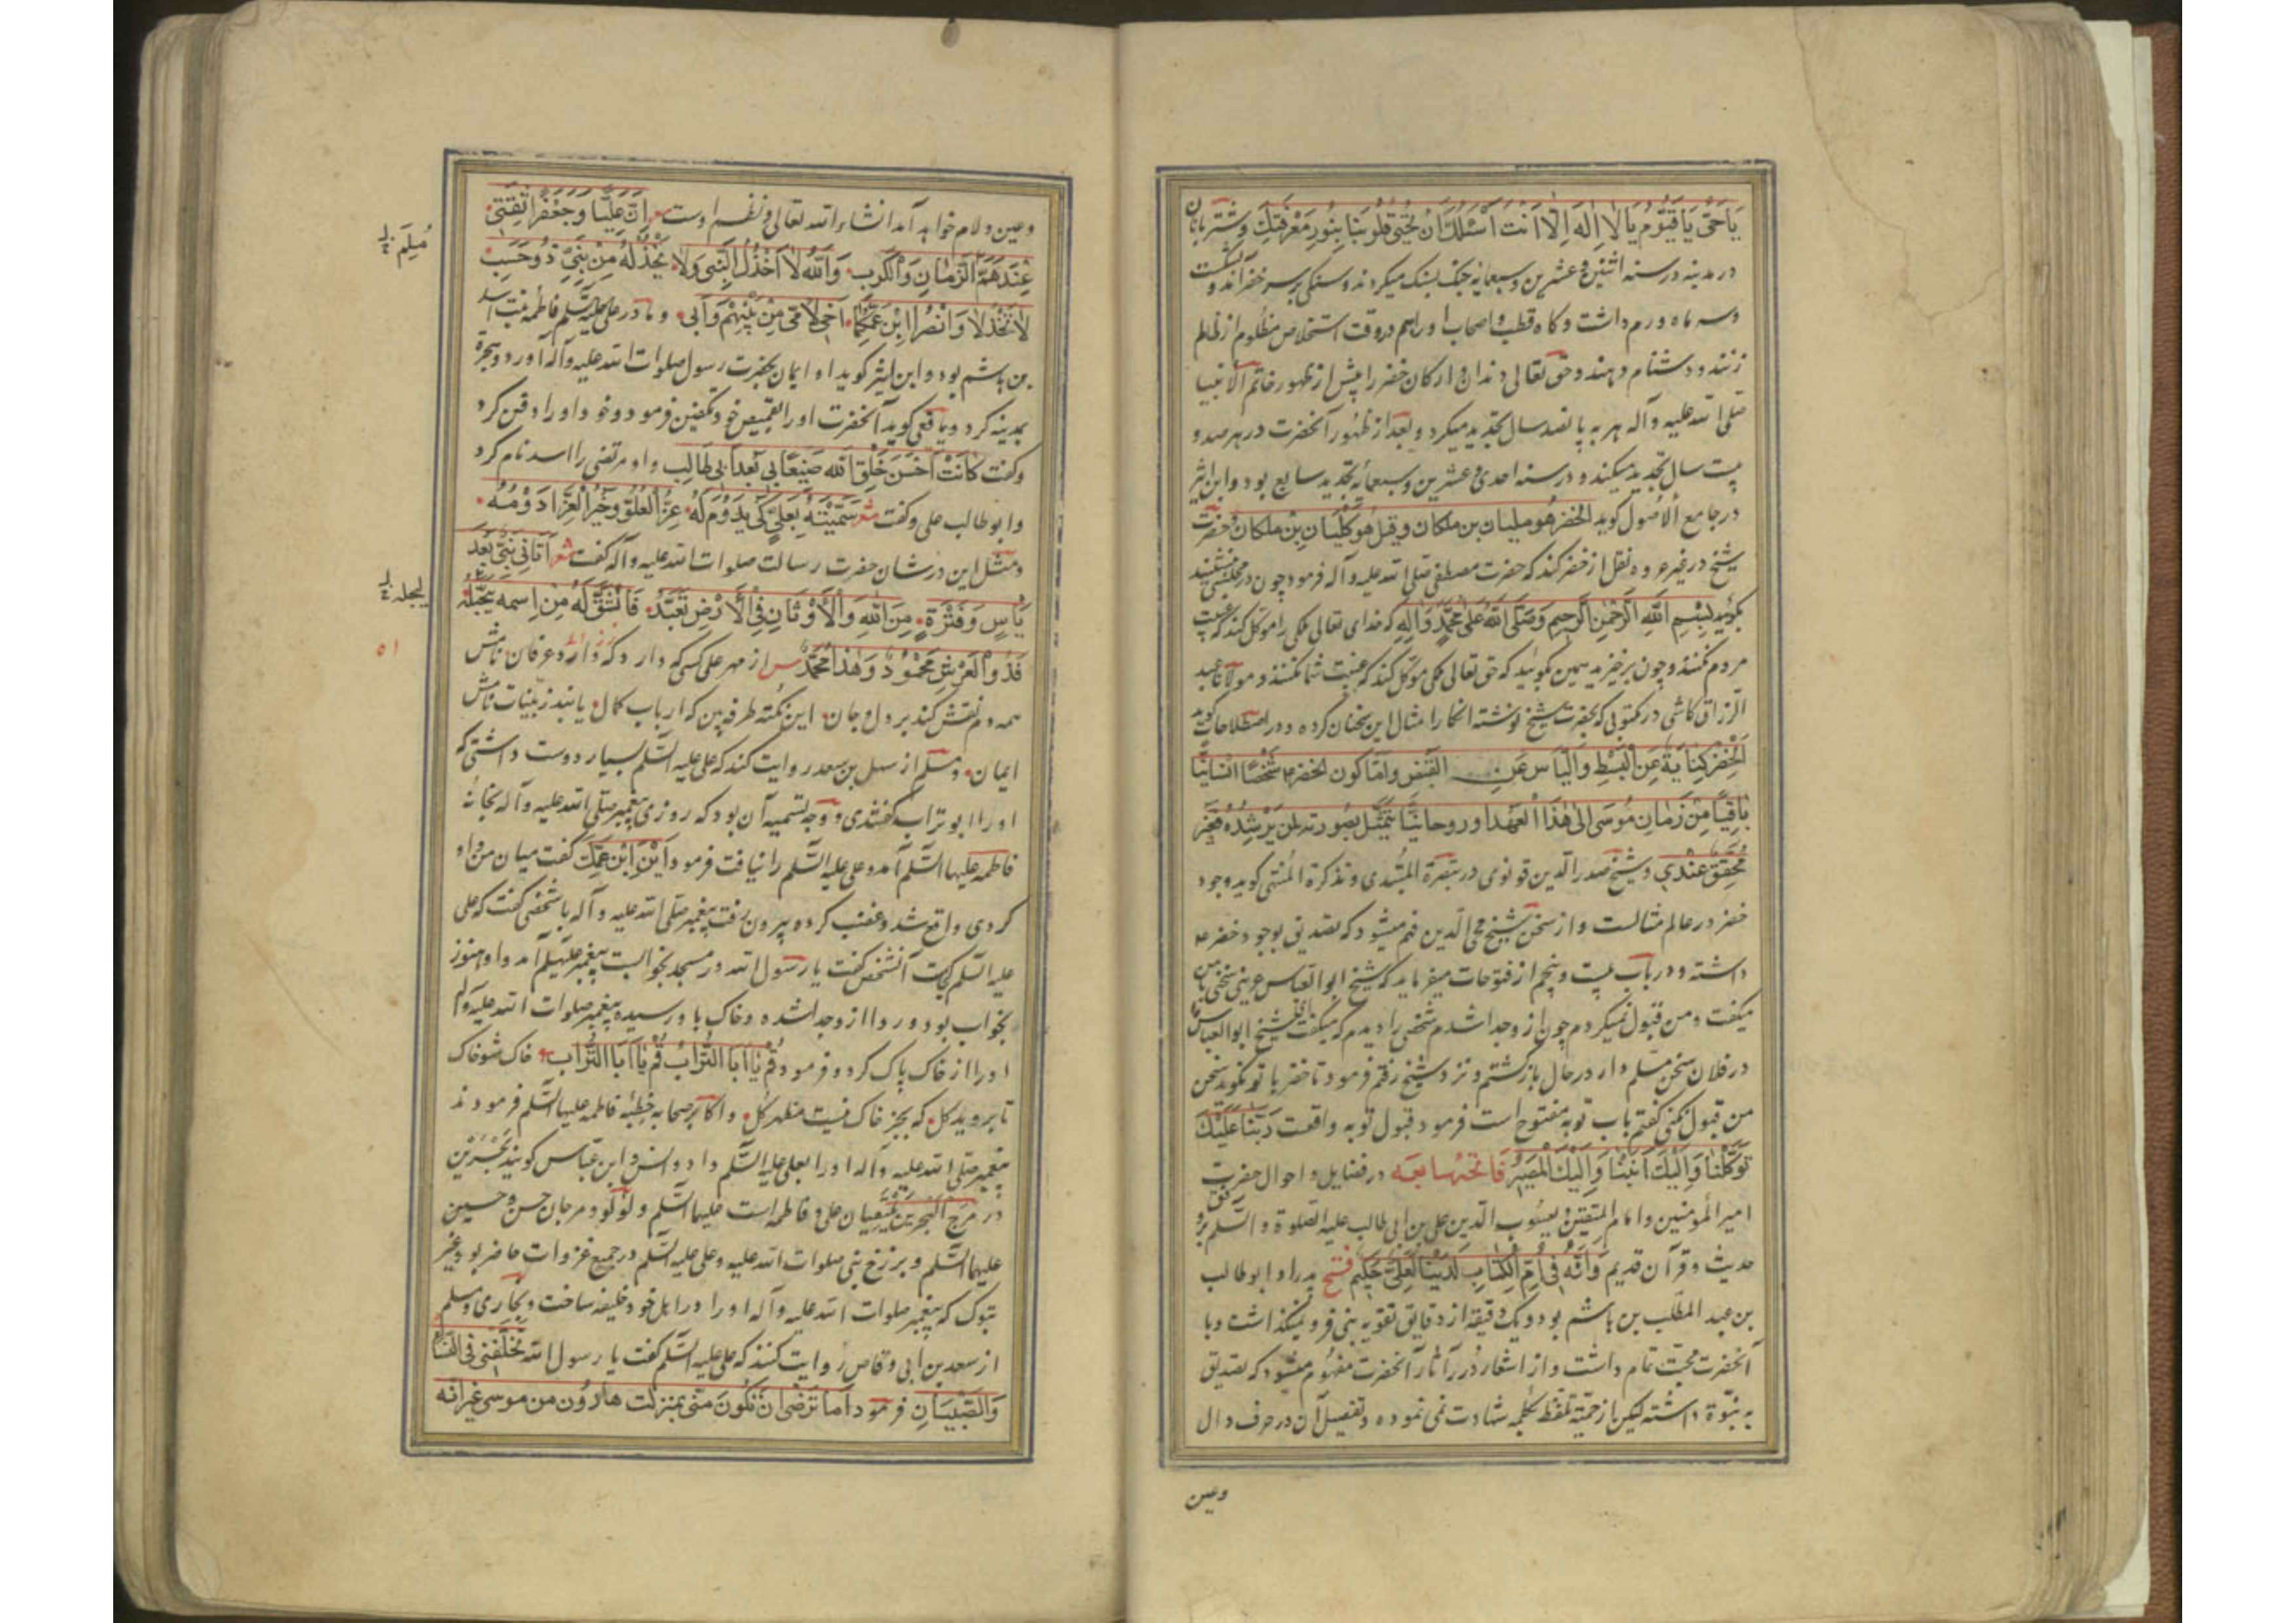 يَا حَيُّ يَا قَيُّومُ يَا لَا اِلٰهَ اِلَّا اَنْتَ اَسْئَلُكَ اَنْ تُحْيِيَ قُلُوبَنَا بِنُورِ مَعْرِفَتِكَ وشتربانان
در مدينه در سنه اثنين و عشرين و سبعمائه جنک بسنک ميکردند و سنکی بر سر خضر آمد و بشکست
و سه ماه ورم داشت و کاه قطب و اصحاب او را هم در وقت استخلاص مظلوم از ظالم
زنند و دشنام دهند و حق تعالی دندان و ارکان خضر را پيش از ظهور خاتم الانبيا
صلی الله عليه و آله هر به پانصد سال تجديد ميکرد و بعد از ظهور آنحضرت در هر صد و
بيست سال تجديد ميکند و در سنه احدی و عشرين و سبعمائه تجديد سابع بود و ابن اثير
در جامع الاصول کويد الخضر هو مليان بن ملکان وقيل هو کليان بن ملکان و حضرت
شيخ در غير عروه نقل از خضر کند که حضرت مصطفی صلی الله عليه و آله فرمود چون در مجلسی بنشينيد
بکوييد بِسْمِ اللهِ الرَّحْمٰنِ الرَّحِيمِ وَصَلَّى اللهُ عَلٰى مُحَمَّدٍ وَاٰلِهِ که خدای تعالی ملکی را موکل کند که غيبت
مردم نکنند و چون برخيزيد همين بکوييد که حق تعالی ملکی موکل کند که غيبت شما نکنند و مولانا عبد
الرزاق کاشی در مکتوبی که بحضرت شيخ نوشته انکار امثال اين سخنان کرده و در اصطلاحات کويد
اَلْخِضْرُ كِنَايَةٌ عَنِ الْبَسْطِ وَاِلْيَاسُ عَنِ القبض واما كون الخضر ع شَخْصًا انسانيًّا
بَاقِيًا مِنْ زَمَانِ مُوسٰى اِلٰى هٰذَا الْعَهْدِ او روحانيًّا يَتَمَثَّلُ بصورته لمن يرشده فَغَيْرُ
مُحَقَّقٍ عِنْدِي و شيخ صدر الدين قونوی در تبصرة المبتدی و تذکرة المنتهی کويد وجود
خضر در عالم مثالست و از سخن شيخ محی الدين فهم ميشود که تصديق بوجود خضر ع
داشته و در باب بيست و پنجم از فتوحات ميفرمايد که شيخ ابو العباس عرينی سخنی با من
ميکفت و من قبول نميکردم چون از و جدا شدم شخصی را ديدم که ميکفت شيخ ابو العباس
در فلان سخن مسلم دار در حال باز کشتم و نزد شيخ رفتم فرمود تا خضر با تو نکويد سخن
من قبول نکنی کفتم باب توبه مفتوح است فرمود قبول توبه واقعست رَبَّنَا عَلَيْكَ
تَوَكَّلْنَا وَاِلَيْكَ اَنَبْنَا وَاِلَيْكَ الْمَصِيرُ فاتحهٔ سابعه در فضايل و احوال حضرت
امير المؤمنين و امام المتقين و يعسوب الدين علی بن ابی طالب عليه الصلوة و السلم بر وفق
حديث و قرآن قديم وَاِنَّهُ فِي اُمِّ الْكِتَابِ لَدَيْنَا لَعَلِيٌّ حَكِيمٌ فتح پدر او ابو طالب
بن عبد المطلب بن هاشم بود و يک دقيقه از دقايق تقويه نبی فرو نميکذاشت و با
آنحضرت محبت تمام داشت و از اشعار درر آثار آنحضرت مفهوم ميشود که تصديق
به نبوة داشته ليکن از حميّة تلفظ بکلمه شهادت نمی نموده و تفصيل آن در حرف دال
وعين
وعين ولام خواهد آمد انشاء الله تعالى و نظم اوست شعر اِنَّ عَلِيًّا وَجَعْفَرًا ثِقَتِي
عِنْدَ مُلِمِّ الزَّمَانِ وَالْكُرَبِ وَاللهِ لَا اَخْذُلُ النَّبِيَّ وَلَا يَخْذُلُهُ مِنْ بَنِيَّ ذُو حَسَبِ
لَا تَخْذُلَا وَانْصُرَا ابْنَ عَمِّكُمَا اَخِي لِاُمِّي مِنْ بَيْنِهِمْ وَاَبِي و مادر علی عليه السلم فاطمه بنت اسد
بن هاشم بود و ابن اثير کويد او ايمان بحضرت رسول صلوات الله عليه و آله آورد و هجرة
بمدينه کرد و يافعی کويد آنحضرت او را بقميص خود تکفين فرمود و خود او را دفن کرد
و کفت كَانَتْ اَحْسَنَ خَلْقِ اللهِ صَنِيعًا بِي بَعْدَ اَبِي طَالِبٍ و او مرتضی را اسد نام کرد
و ابو طالب علی و کفت شعر سَمَّيْتُهُ بِعَلِيٍّ كَيْ يَدُومَ لَهُ عِزُّ الْعُلُوِّ وَخَيْرُ الْعِزِّ اَدْوَمُهُ
و مثل اين در شان حضرت رسالت صلوات الله عليه و آله کفت شعر اَتَانِي نَبِيٌّ بَعْدَ
يَاْسٍ وَفَتْرَةٍ مِنَ اللهِ وَالْاَوْثَانُ فِي الْاَرْضِ تُعْبَدُ فَانْشَقَّ لَهُ مِنِ اسْمِهِ
فَذُو الْعَرْشِ مَحْمُودٌ وَهٰذَا مُحَمَّدٌ س از مهر علی کسی که دارد عرفان نامش
همه دم نقش کند بر دل و جان اين نکته طرفه بين که ارباب کمال يابند ز بينات نامش
ايمان و مسلم از سهل بن سعد روايت کند که علی عليه السلم بسيار دوست داشتی که
او را ابو تراب کفتندی و وجه تسميه آن بود که روزی پيغمبر صلی الله عليه و آله بخانهٔ
فاطمه عليها السلم آمد و علی عليه السلم را نيافت فرمود اَيْنَ ابْنُ عَمِّكِ کفت ميان من و او
کردی واقع شد و غضب کرده بيرون رفت پيغمبر صلی الله عليه و آله با شخصی کفت که علی
عليه السلم کجاست آنشخص کفت يا رسول الله در مسجد بخوابست پيغمبر عليه السلم آمد و او هنوز
بخواب بود و ردا از و جدا شده و خاک باو رسيده پيغمبر صلوات الله عليه و آله
او را از خاک پاک کرد و فرمود قُمْ يَا اَبَا التُّرَابِ قُمْ يَا اَبَا التُّرَابِ خاک شو خاک
تا برويد کل که بجز خاک نيست مظهر کل و اکابر صحابه خطبهٔ فاطمه عليها السلم فرمودند
پيغمبر صلی الله عليه و آله او را بعلی عليه السلم داد و انس و ابن عباس کويند بَحْرَيْن
در مَرَجَ الْبَحْرَيْنِ يَلْتَقِيَانِ علی و فاطمه است عليهما السلم و لؤلؤ و مرجان حسن و حسين
عليهما السلم و برزخ نبی صلوات الله عليه و علی عليه السلم در جميع غزوات حاضر بود غير
تبوک که پيغمبر صلوات الله عليه و آله او را در اهل خود خليفه ساخت و بخاری و مسلم
از سعد بن ابی وقاص روايت کنند که علی عليه السلم کفت يا رسول الله تُخَلِّفُنِي فِي النِّسَاءِ
وَالصِّبْيَانِ فرمود اَمَا تَرْضٰى اَنْ تَكُونَ مِنِّي بمنزلت هارون من موسى غير انه
مُلِمّ
٥١